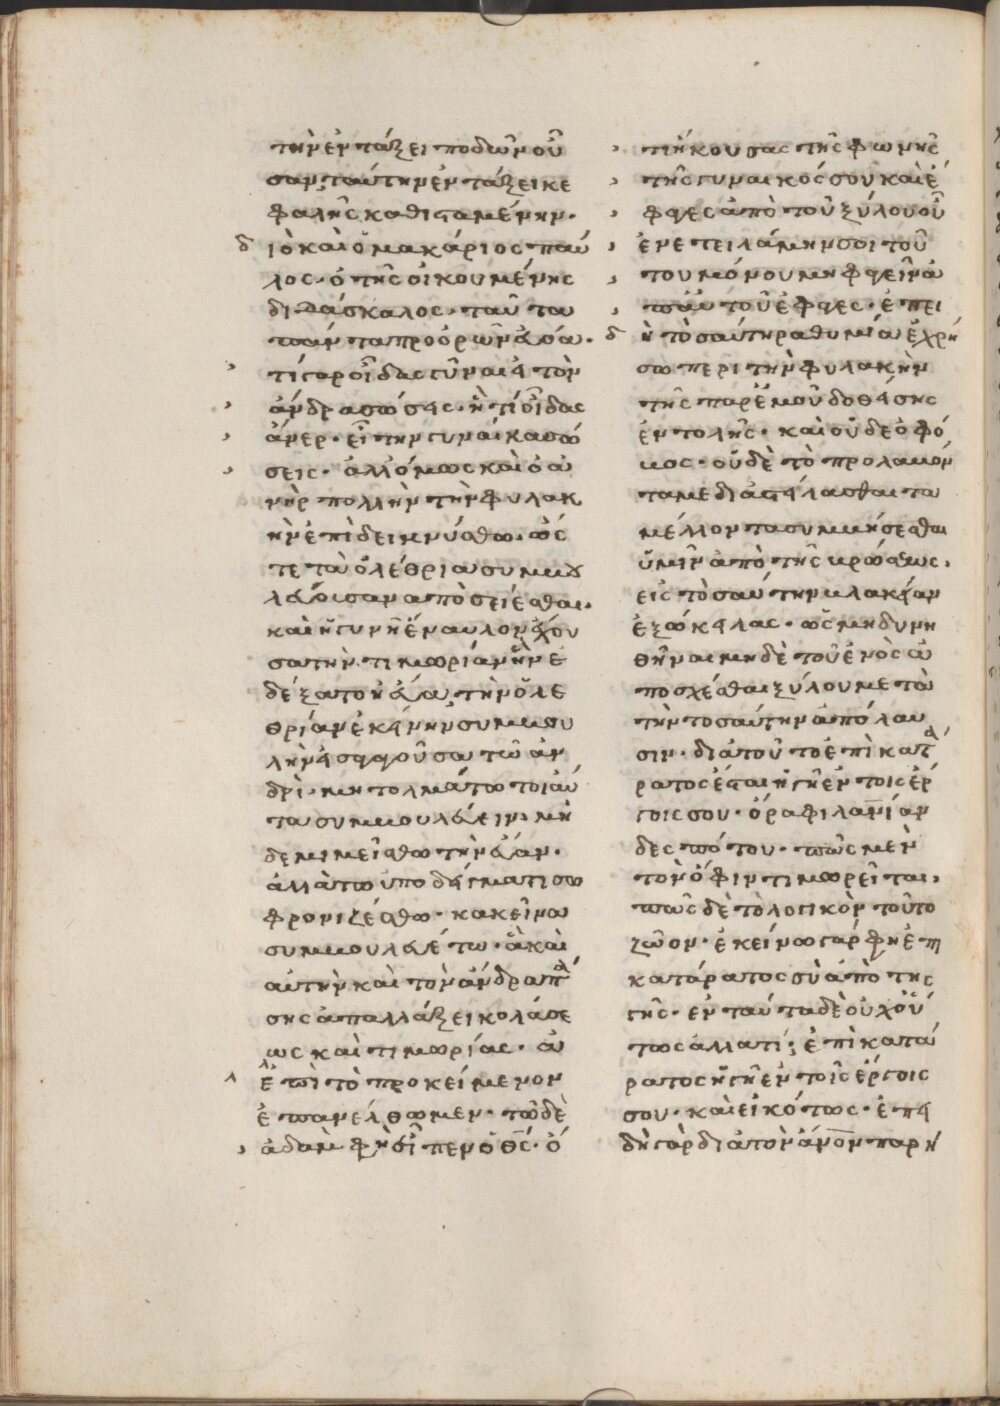 τὴν ἐν τάξει ποδῶν οὖ
σαν, ταύτην ἐν τάξει κε
φαλῆς καθισταμένην·
διὸ καὶ ὁ μακάριος παῦ
λος· ὁ τῆς οἰκουμένης
διδάσκαλος, ταῦτα
πάντα προορῶν ἐβόα·
τί γὰρ οἶδας γύναι εἰ τὸν
ἄνδρα σώσεις· ἢ τί οἶδας
ἄνερ· εἰ τὴν γυναῖκα σώ
σεις· ἀλλ' ὅμως καὶ ὁ ἀ
νὴρ πολλὴν τὴν φυλακ
ὴν ἐπιδεικνύσθω· ὥς
τε τὰ ὀλέθρια συμβου
λεύουσαν ἀποσείεσθαι·
καὶ ἡ γυνὴ ἔναυλον ἔχου
σα τὴν τιμωρίαν ἣν ἐ
δέξατο ἡ εὔα, τὴν ὀλε
θρίαν ἐκείνην συμβου
λὴν εἰσφέρουσα τῷ ἀν
δρί· μὴ τολμάτω τοιαῦ
τα συμβουλεύειν· μὴ
δὲ μιμείσθω τὴν εὔαν·
ἀλλὰ τῷ ὑποδείγματι σω
φρονιζέσθω· κἀκεῖνα
συμβουλευέτω· ἃ καὶ
αὐτὴν καὶ τὸν ἄνδρα πά
σης ἀπαλλάξει κολάσε
ως καὶ τιμωρίας· ἀ
ἐπὶ τὸ προκείμενον
ἐπανέλθωμεν· τῷ δὲ
ἀδὰμ φησὶ εἶπεν ὁ θς· ὅ
τι ἤκουσας τῆς φωνῆς
τῆς γυναικός σου καὶ ἔ
φαγες ἀπὸ τοῦ ξύλου οὗ
ἐνετειλάμην σοι τού
του μόνου μὴ φαγεῖν ἀ
π' αὐτοῦ ἔφαγες· ἐπει
δὴ τοσαύτη ραθυμία ἐχρή
σω περὶ τὴν φυλακὴν
τῆς παρ' ἐμοῦ δοθείσης
ἐντολῆς· καὶ οὐδὲ ὁ φό
βος· οὐδὲ τὸ προλαβόν
τα με διαστείλασθαι τὰ
μέλλοντα συμβήσεσθαι
ὑμῖν ἀπὸ τῆς βρώσεως,
εἰς τοσαύτην βλακείαν
ἐξώκειλας· ὡς μὴ δυνη
θῆναι μηδὲ τοῦ ἑνὸς ἀ
ποσχέσθαι ξύλου μετὰ
τὴν τοσαύτην ἀπόλαυ
σιν· διὰ τοῦτο ἐπικατά
ρατος ἔσται ἡ γῆ ἐν τοῖς ἔρ
γοις σου· ὅρα φιλανίαν
δεσπότου· πῶς μὲν
τὸν ὄφιν τιμωρεῖται,
πῶς δὲ τὸ λογικὸν τοῦτο
ζῶον· ἐκείνω γὰρ φη ἐπι
κατάρατος σὺ ἀπὸ τῆς
γῆς· ἐνταῦτα δὲ οὐχ οὕ
τως ἀλλα τί; ἐπικατά
ρατος ἡ γῆ ἐν τοῖς ἔργοις
σου· καὶ εἰκότως· ἐπει
δὴ γὰρ διὰ τὸν ἄνον παρή